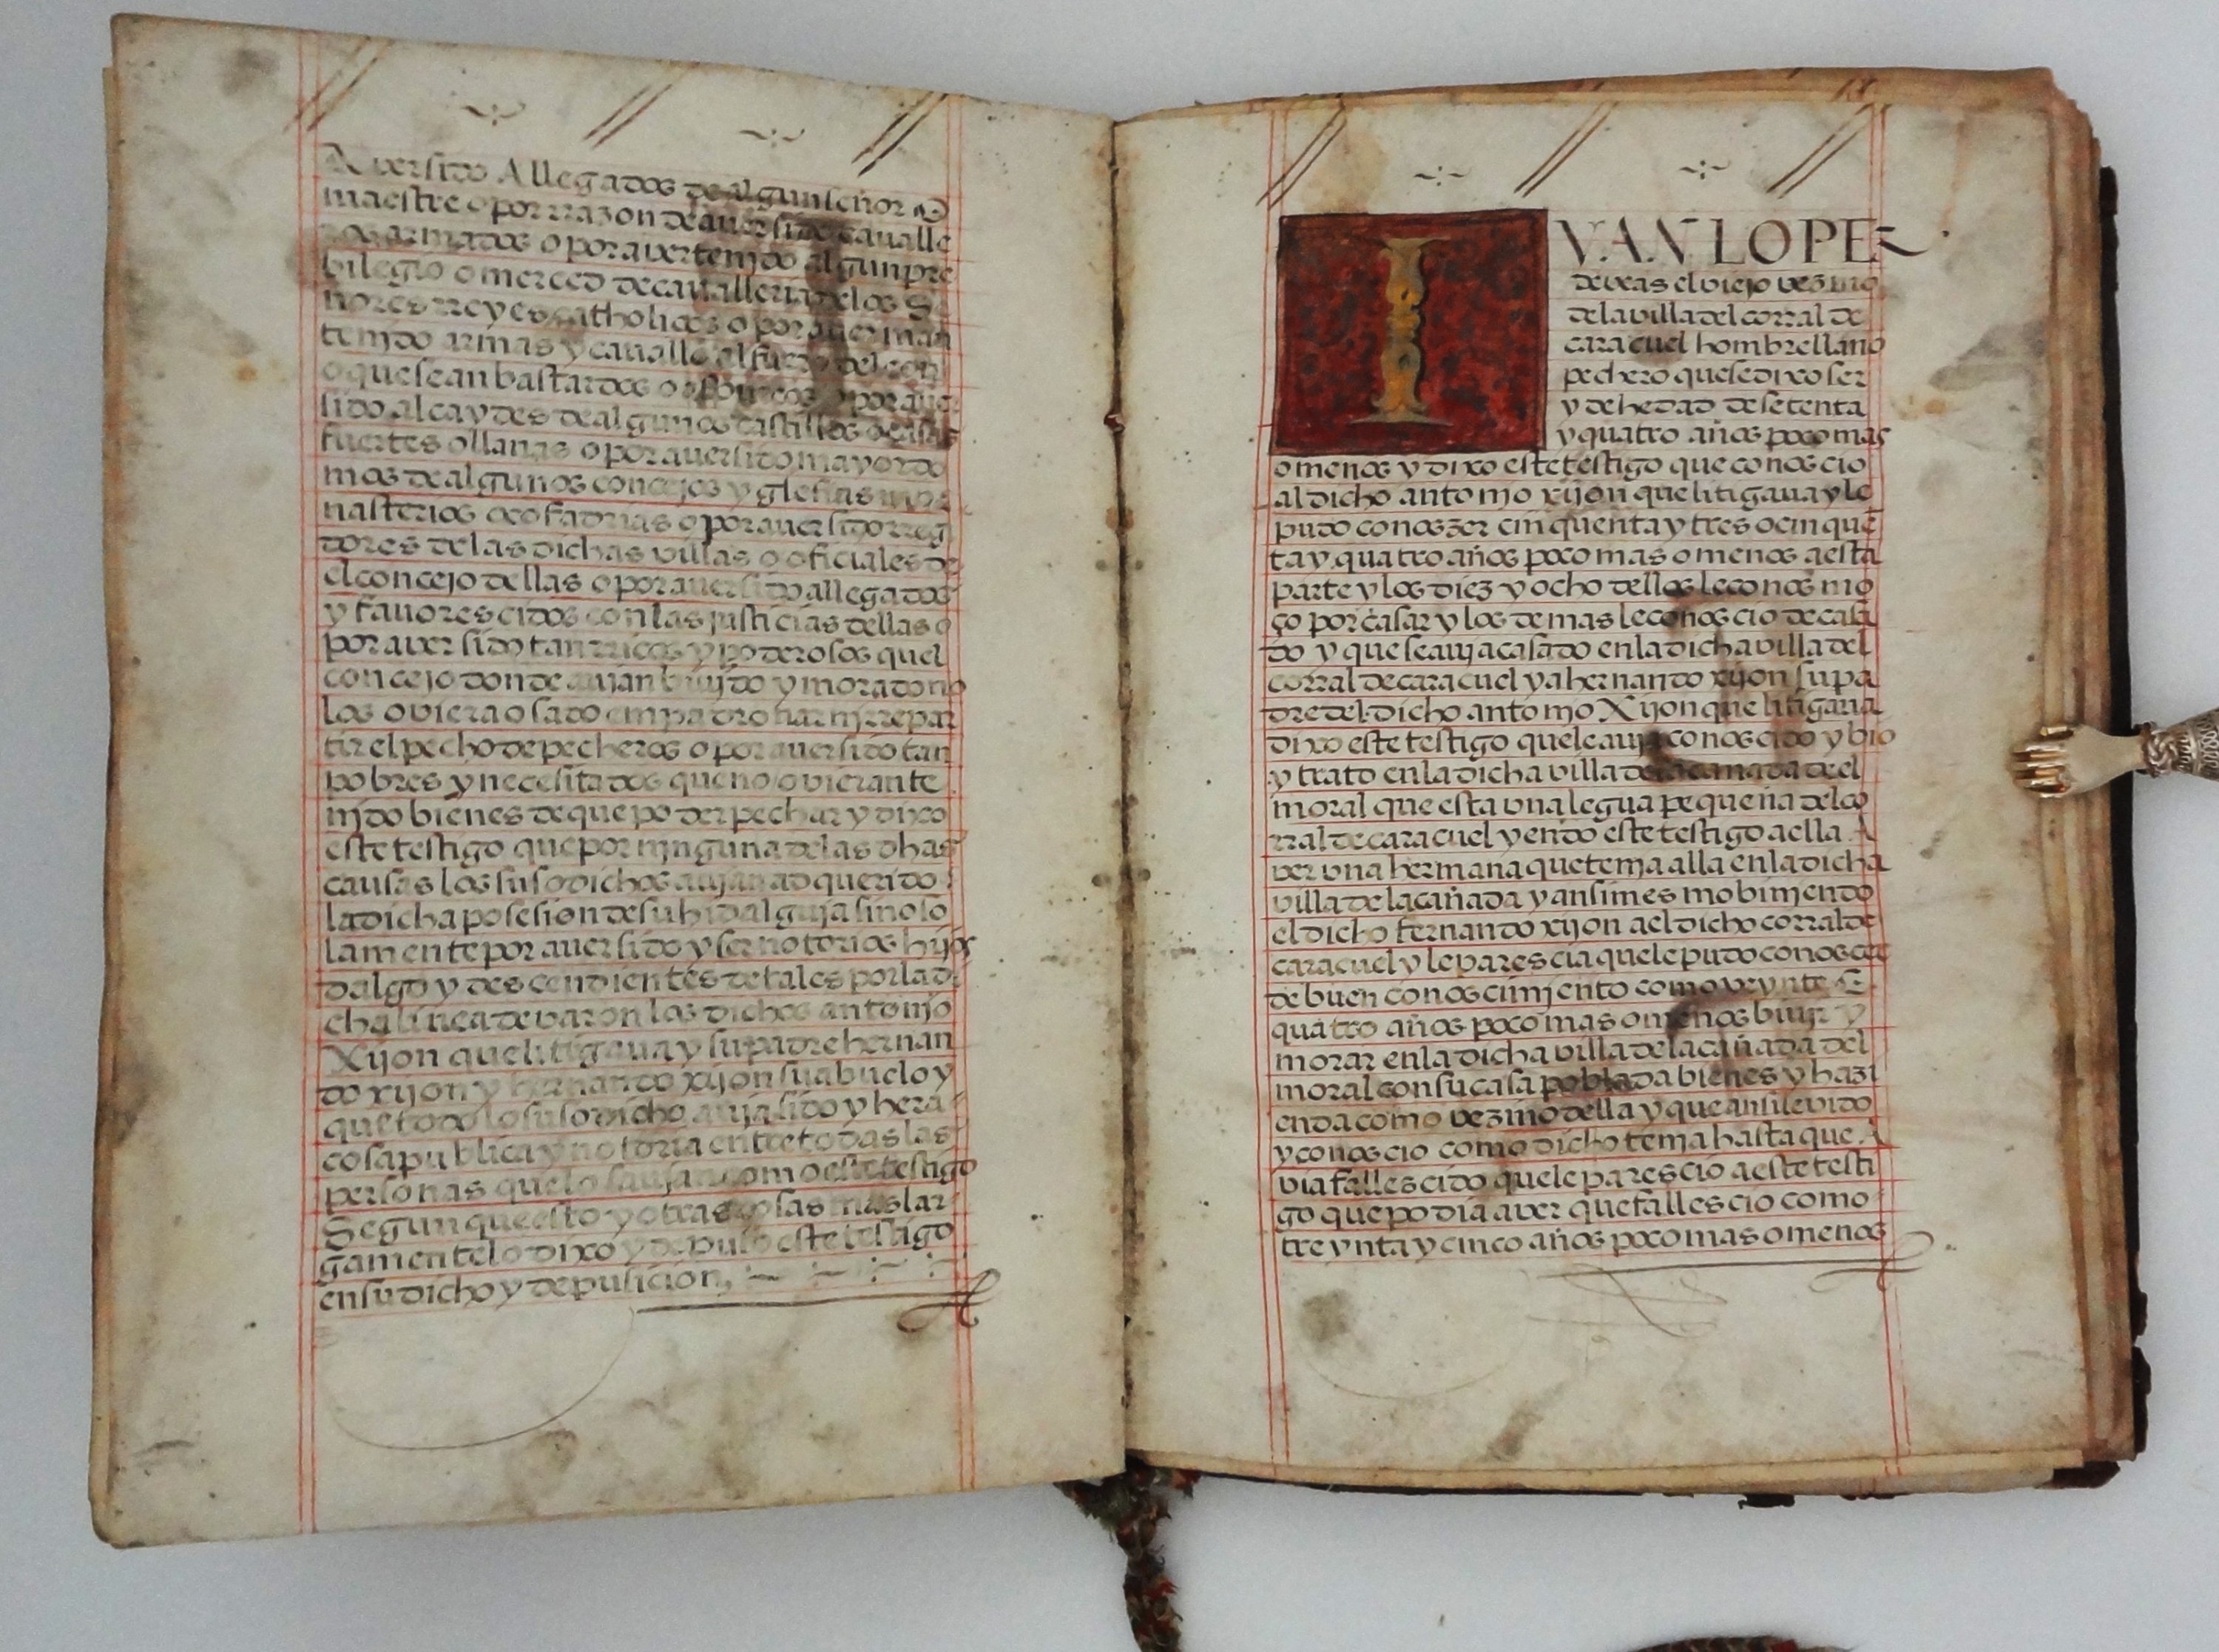 Aversido Allegados de algun señor o
maestre o por rrazon de aver sido cavalle
ros armados o por aver tenjdo algun pre
bilegio o merced de cavalleria de los Se
ñores rreyes catholicos o por aver man
tenjdo armas y cavallo al fuero de leon
o que sean bastardos o espureos o por aver
sido alcaydes de algunos castillos o casas
fuertes o llanas o por aver sido mayordo
mos de algunos concejos yglesias mo
nasterios o cofadrias o por aver sido rregi
dores de las dichas villas o oficiales de
el concejo dellas o por aver sido allegados
y favorescidos con las justicias dellas o
por aver sido tan rricos y poderosos quel
concejo donde avjan bivjdo y morado no
los oviera osado empadronar nj rrepar
tir el pecho de pecheros o por aver sido tan
pobres y necesitados que no ovieran te
njdo bienes de que poder pechar y dixo
este testigo que por njnguna de las dhas
causas los suso dichos avjan adquerido
la dicha posesion de su hidalguja sino so
lamente por aver sido y ser notorios hijos
dalgo y descendientes de tales por la di
cha linea de varon los dichos antonjo
Xijon que litigava y su padre hernan
do xijon y hernando xijon su abuelo y
que todo lo suso dicho avja sido y hera
cosa publica y notoria entre todas las
personas que lo savjan como este testigo
Segun que esto y otras cosas mas lar
gamente lo dixo y depuso este testigo
en su dicho y depusicion,
IVAN LOPEZ
de veas el viejo vezino
de la villa del corral de
caracuel hombre llano
pechero que se dixo ser
y de hedad de setenta
y quatro años poco mas
o menos y dixo este testigo que conoscio
al dicho antonjo xijon que litigava y le
pudo conoszer cinquenta y tres o cinquē
ta y quatro años poco mas o menos a esta
parte y los diez y ocho dellos le conos mo
ço por casar y los demas le conoscio de casa
do y que se avja casado en la dicha villa del
corral de caracuel y a hernando xijon su pa
dre del dicho antonjo Xijon que litigava
dixo este testigo que le avja conoscido y bio
y trato en la dicha villa de la cañada de el
moral que esta una legua pequeña del co
rral de caracuel yendo este testigo a ella A
ver una hermana que tenja alla en la dicha
villa de la cañada y ansi mesmo binjendo
el dicho fernando xijon a el dicho corral de
caracuel y le parescia que le pudo conoscer
de buen conoscimjento como veynte E
quatro años poco mas o menos bivjr y
morar en la dicha villa de la cañada del
moral con su casa poblada bienes y hazi
enda como vezino della y que ansi le vido
y conoscio como dicho tenja hasta que A
via fallescido que le parescio a este testi
go que podia aver que fallescio como
treynta y cinco años poco mas o menos